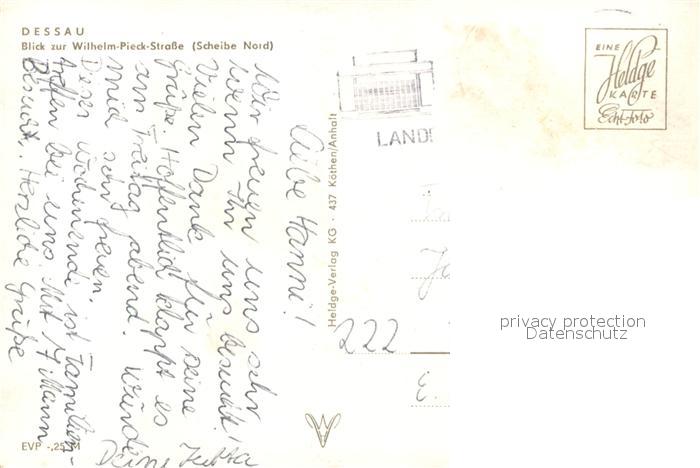 DESSAU
Blick zur Wilhelm-Pieck-Straße (Scheibe Nord)
Liebe Hanni!
Wir freuen uns sehr
wenn Ihr uns besucht!
Vielen Dank für Deine
Grüße. Hoffentlich klappt es
am Freitag abend. Würde
mich sehr freuen.
Dieses Wochenende ist Familien-
treffen bei uns. Mit 17 Mann
Besucht. Herzliche Grüße
Deine Jutta
EVP -,25 M
Heldge-Verlag KG · 437 Köthen/Anhalt
LAND
EINE
Heldge
KARTE
Echt-Foto
222
E.
privacy protection
Datenschutz